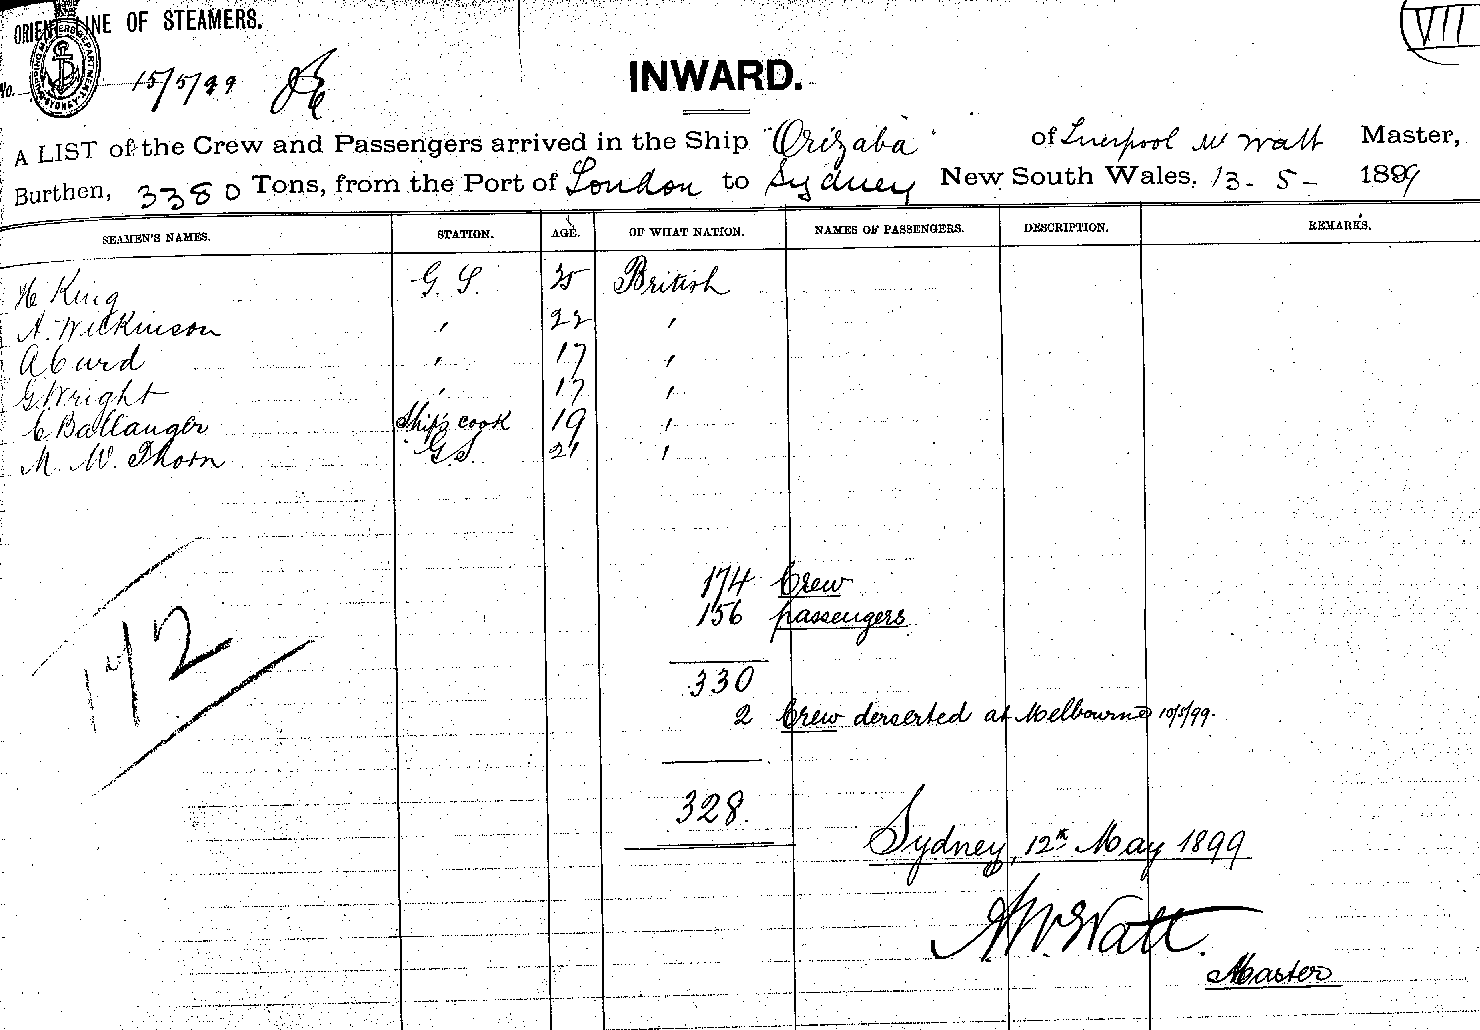 ORIENT LINE OF STEAMERS.
VII
SHIPPING MASTERS DEPARTMENT SYDNEY
No. 15/5/99
INWARD.
A LIST of the Crew and Passengers arrived in the Ship "Orizaba" of Liverpool W Watt Master,
Burthen, 3380 Tons, from the Port of London to Sydney New South Wales, 13-5- 1899
SEAMEN'S NAMES. STATION. AGE. OF WHAT NATION. NAMES OF PASSENGERS. DESCRIPTION. REMARKS.
H King G.S. 25 British
A. Wilkinson " 22 "
A Curd " 17 "
G. Wright " 17 "
C Ballanger Ship's cook 19 "
M. W. Thorn G.S. 21 "
174 Crew
156 passengers
330
2 Crew derserted at Melbourne 10/5/99.
328.
172
Sydney, 12th May 1899
A.W. Watt.
Master